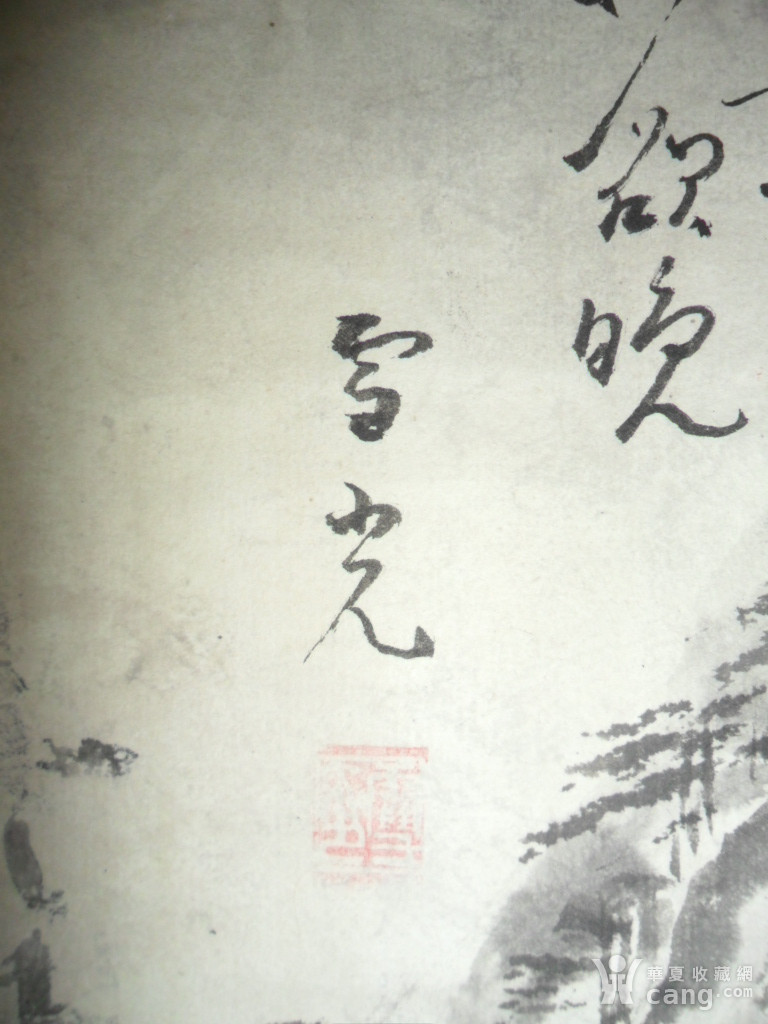 欲晚
雪光
華夏收藏網
cang.com